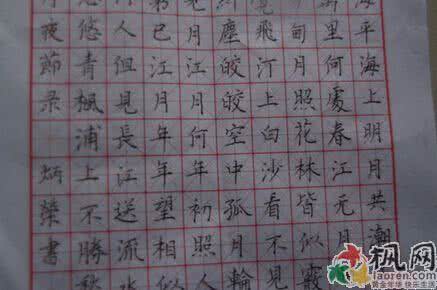 海平海上明月共潮
里何處春江无月
甸月照花林皆似霰
飛汀上白沙看不見
纖塵皎皎空中孤月輪
月江月何年初照人
窮已江月年年望相似
何人但見長江送流水
悠青楓浦上不勝愁
夜節录 炳榮書
枫网
laoren.com
黄金年华 快乐生活